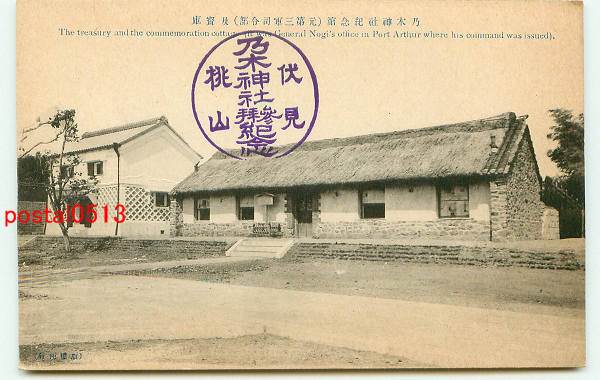 乃木神社記念館（元第三軍司令部）及寳庫
The treasury and the commemoration cottage (it was General Nogi's office in Port Arthur where his command was issued).
伏見
乃木神社
參拜紀念
桃山
postal0513